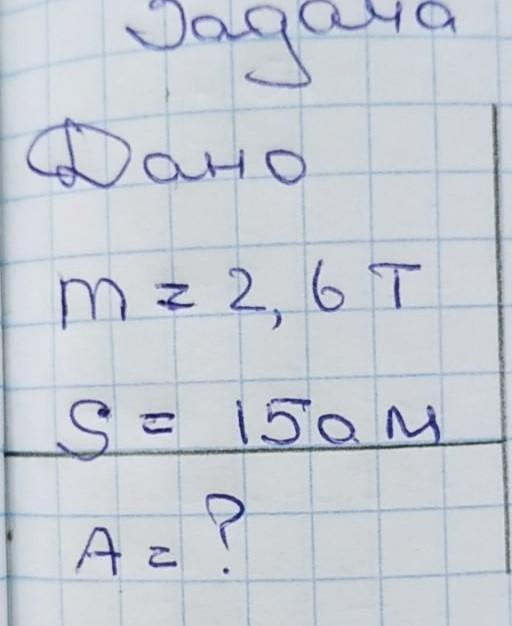 Задача
Дано
m = 2,6 т
S = 150 м
A = ?